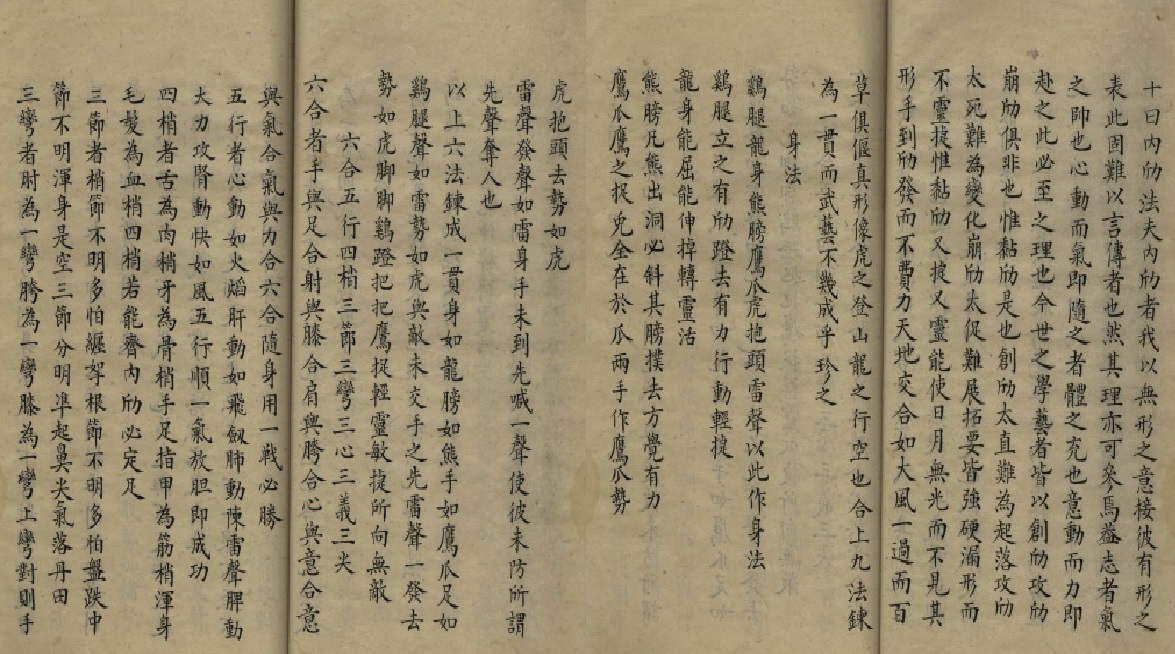 十曰內劤法夫內劤者我以無形之意接彼有形之
表此固難以言傳者也然其理亦可參焉蓋志者氣
之帥也心動而氣即隨之者體之充也意動而力即
赴之此必至之理也今世之學藝者皆以創劤攻劤
崩劤俱非也惟黏劤是也創劤太直難為起落攻劤
太死難為變化崩劤太促難展拓要皆強硬漏形而
不靈捷惟黏劤又捷又靈能使日月無光而不見其
形手到劤發而不費力天地交合如大風一過而百
草俱偃真形像虎之登山龍之行空也合上九法鍊
為一貫而武藝不幾成乎珍之
身法
鷄腿龍身熊膀鷹瓜虎抱頭雷聲以此作身法
鷄腿立之有劤蹬去有力行動輕捷
龍身能屈能伸掉轉靈活
熊膀凡熊出洞必斜其膀撲去方覺有力
鷹瓜鷹之捉兔全在於瓜兩手作鷹瓜勢
虎抱頭去勢如虎
雷聲發聲如雷身手未到先喊一聲使彼未防所謂
先聲奪人也
以上六法鍊成一貫身如龍膀如熊手如鷹瓜足如
鷄腿聲如雷勢如虎與敵未交手之先雷聲一發去
勢如虎脚脚鷄蹬把把鷹捉輕靈敏捷所向無敵
六合五行四梢三節三彎三心三義三尖
六合者手與足合射與膝合肩與胯合心與意合意
與氣合氣與力合六合隨身用一戰必勝
五行者心動如火熖肝動如飛劔肺動陳雷聲脾動
大力攻腎動快如風五行順一氣放胆即成功
四梢者舌為肉梢牙為骨梢手足指甲為筋梢渾身
毛髮為血梢四梢若能齊內劤必定足
三節者梢節不明多怕纏拏根節不明多怕盤跌中
節不明渾身是空三節分明準起鼻尖氣落丹田
三彎者肘為一彎胯為一彎膝為一彎上彎對則手